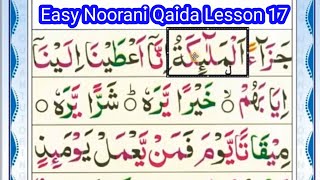 Easy Noorani Qaida Lesson 17
جَزَآءً اَلْمَلٰٓئِكَةَ اِنَّآ اَعْطَيْنَا اِلَيْنَا
اِيَابَهُمْ ○ خَيْرًا يَّرَهٗ ○ شَرًّا يَّرَهٗ ○
مِيْقَاتًا يَّوْمَ فَمَنْ يَّعْمَلْ يَوْمَئِذٍ